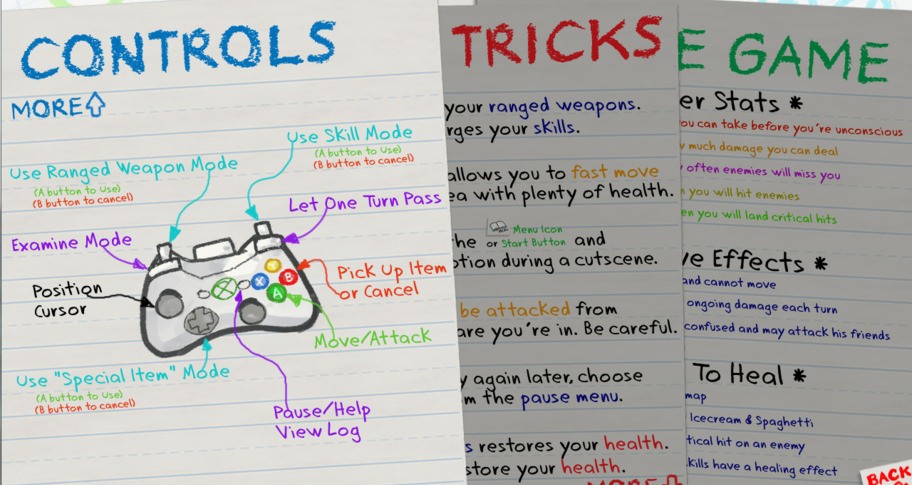 CONTROLS
MORE
Use Skill Mode
(A button to Use)
(B button to cancel)
Use Ranged Weapon Mode
(A button to Use)
(B button to cancel)
Let One Turn Pass
Examine Mode
Position
Cursor
Y
X
B
A
Pick Up Item
or Cancel
Move/Attack
Use "Special Item" Mode
(A button to Use)
(B button to cancel)
Pause/Help
View Log
TRICKS
your ranged weapons.
rges your skills.
allows you to fast move
ea with plenty of health.
he or Menu Icon
Start Button and
otion during a cutscene.
be attacked from
are you're in. Be careful.
y again later, choose
m the pause menu.
s restores your health.
store your health.
MORE
E GAME
er Stats *
ou can take before you're unconscious
much damage you can deal
often enemies will miss you
you will hit enemies
en you will land critical hits
ve Effects *
and cannot move
ongoing damage each turn
confused and may attack his friends
To Heal *
map
Icecream & Spaghetti
tical hit on an enemy
kills have a healing effect
BACK